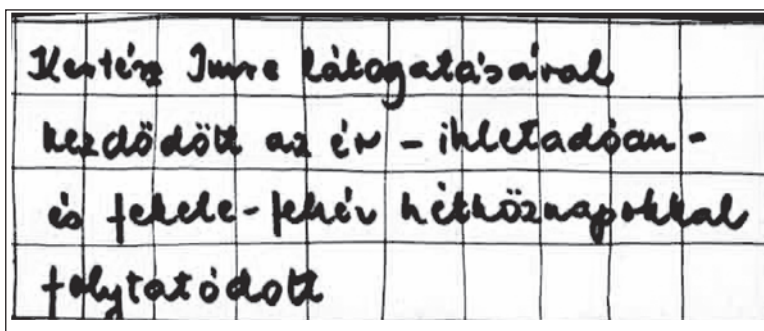 Kertész Imre látogatásával
kezdődött az év – ihletadóan –
és fekete-fehér hétköznapokkal
folytatódott